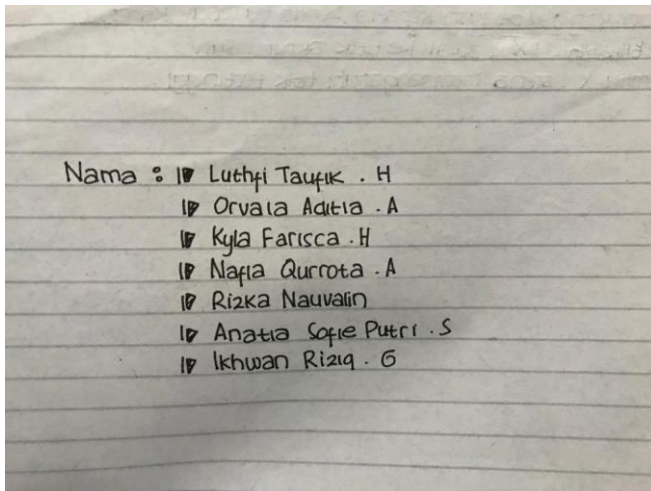 Nama : Luthfi Taufik . H
Orvala Aditia . A
Kyla Farisca . H
Nafia Qurrota . A
Rizka Nauvalin
Anatia Sofie Putri . S
Ikhwan Riziq . G